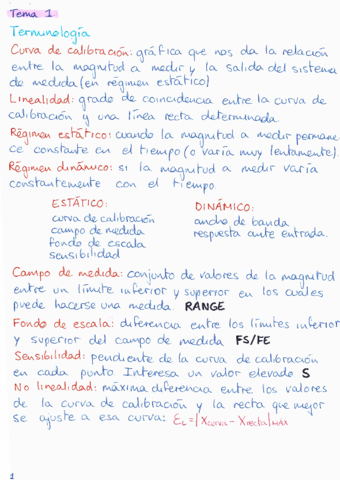 Tema 1
Terminología
Curva de calibración: gráfica que nos da la relación
entre la magnitud a medir y la salida del sistema
de medida (en régimen estático)
Linealidad: grado de coincidencia entre la curva de
calibración y una línea recta determinada.
Régimen estático: cuando la magnitud a medir permane
ce constante en el tiempo (o varía muy lentamente).
Régimen dinámico: si la magnitud a medir varía
constantemente con el tiempo
ESTÁTICO:
curva de calibración
campo de medida
fondo de escala
sensibilidad
DINÁMICO:
ancho de banda
respuesta ante entrada.
Campo de medida: conjunto de valores de la magnitud
entre un límite inferior y superior en los cuales
puede hacerse una medida RANGE
Fondo de escala: diferencia entre los límites inferior
y superior del campo de medida FS/FE
Sensibilidad: pendiente de la curva de calibración
en cada punto. Interesa un valor elevado S
No linealidad: máxima diferencia entre los valores
de la curva de calibración y la recta que mejor
se ajuste a esa curva: EL=|Xcurva - Xrecta|MÁX
1